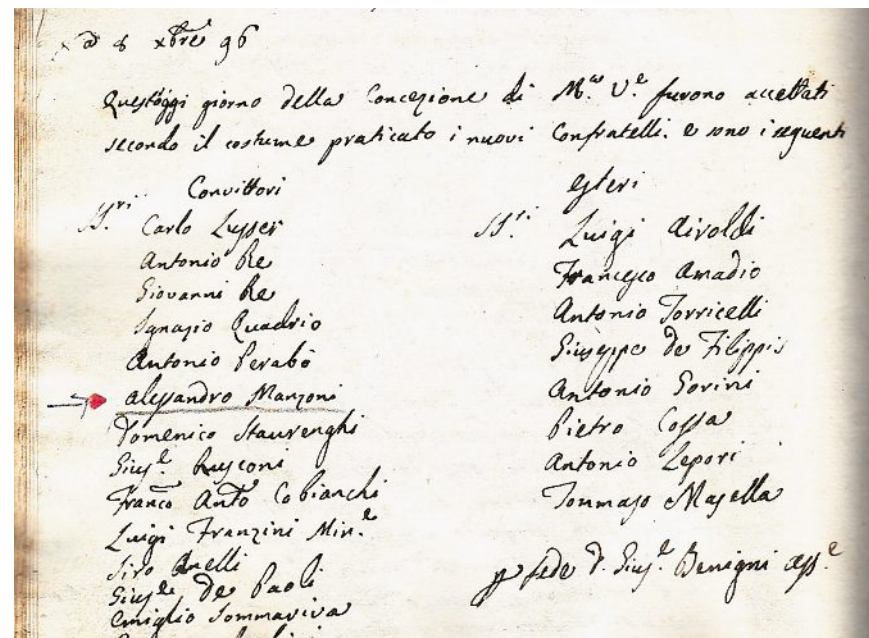 a dì 8 xbre 96
Quest'oggi giorno della Concezione di M.a V.e furono accettati
secondo il costume praticato i nuovi Confratelli. e sono i seguenti
Convittori
SS.ri Carlo Lusser
Antonio Re
Giovanni Re
Ignazio Quadrio
Antonio Perabò
Alessandro Manzoni
Domenico Staurenghi
Gius.e Rusconi
Franco Anto Cobianchi
Luigi Franzini Min.e
Siro Anelli
Gius.e De Paoli
Emiglio Sommariva
Esteri
SS.ri Luigi Airoldi
Francesco Amadio
Antonio Torricelli
Giuseppe De Filippis
Antonio Sorini
Pietro Cossa
Antonio Lepori
Tommaso Masella
p fede D. Gius.e Benigni Ass.e